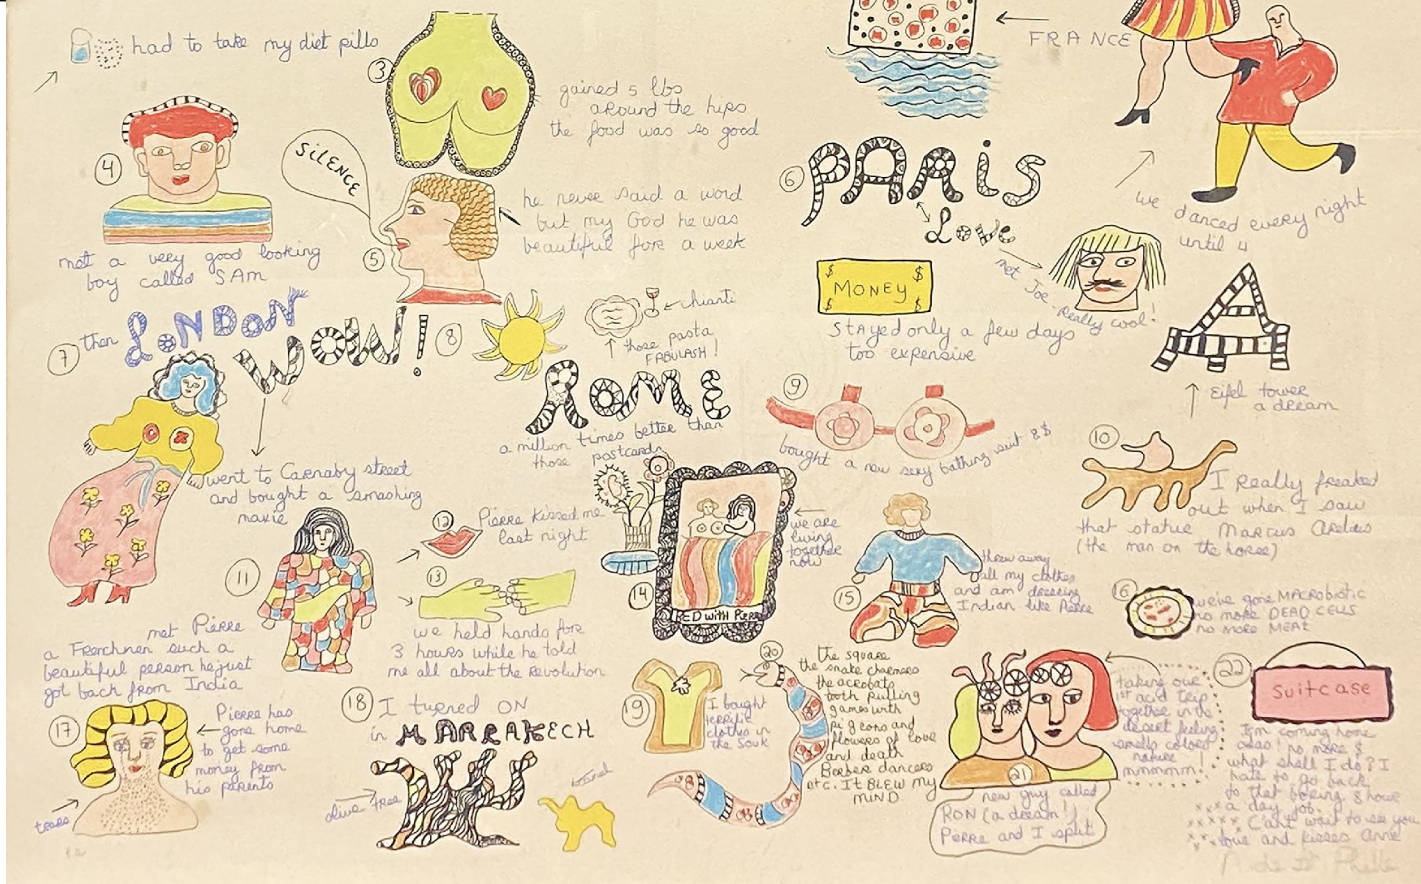 had to take my diet pills
3
gained 5 lbs
around the hips
the food was so good
FRANCE
we danced every night
until 4
4
met a very good looking
boy called SAM
SILENCE
5
he never said a word
but my God he was
beautiful for a week
6
PARIS
Love
met Joe Really cool!
$ $
MONEY
$ $
Stayed only a few days
too expensive
A
Eifel tower
a dream
7
then LONDON
WOW!
went to Carnaby street
and bought a smashing
maxie
8
chianti
those pasta
FABULASH!
ROME
a million times better than
those postcards
9
bought a new sexy bathing suit 8$
10
I Really freaked
out when I saw
that statue Marcus Arelius
(the man on the horse)
11
met Pierre
a Frenchmen such a
beautiful person he just
got back from India
12
Pierre kissed me
last night
13
we held hands for
3 hours while he told
me all about the revolution
14
BED WITH PIERRE
we are
living
together
now
15
threw away
all my clothes
and am dressing
Indian like Pierre
16
we've gone MACROBIOTIC
no more DEAD CELLS
no more MEAT
17
Pierre has
gone home
to get some
money from
his parents
tears
18
I turned ON
in MARRAKECH
olive tree
camel
19
I bought
terrific
clothes in
the Souk
20
the square
the snake charmers
the acrobats
tooth pulling
games with
pigeons and
flowers of love
and death
Berber dancers
etc. It BLEW my
MIND
21
new guy called
RON (a dream!)
Pierre and I split
taking our
1st acid trip
together in the
desert feeling
smells colors
nature!
mmmmm!
22
Suitcase
I'm coming home
alas! no more $
what shall I do? I
hate to go back
to that boring 8 hour
a day job.
xxxx
xxxxx C'ant wait to see you
x x love and kisses Anne